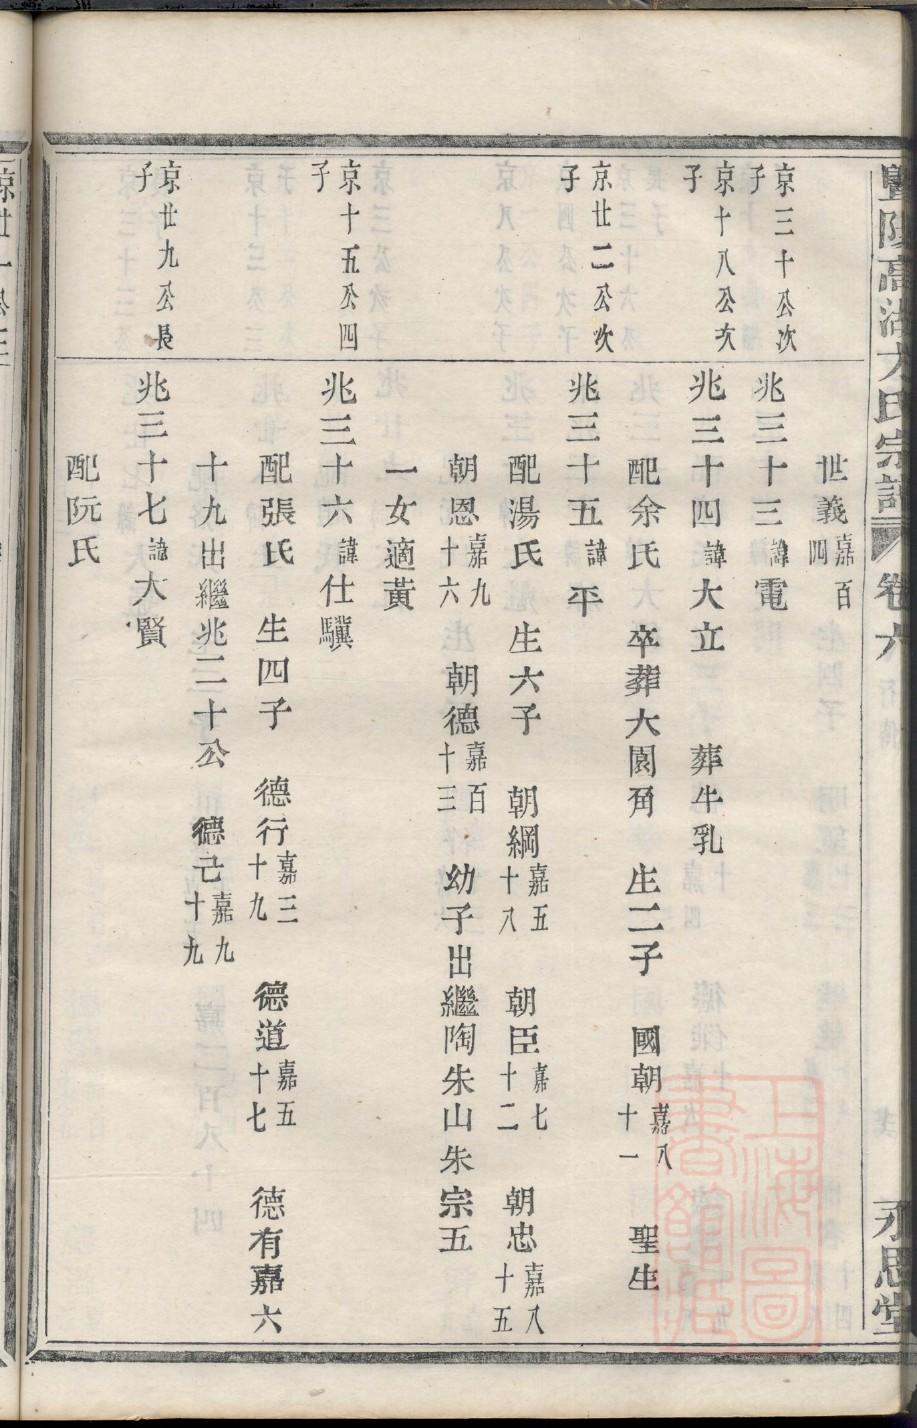 暨陽高湖方氏宗譜 卷六 永思堂
世義嘉百四
京三十公次子
兆三十三諱電
京十八公次子
兆三十四諱大立 葬牛乳
配余氏 卒葬大園角 生二子 國朝嘉八十一 聖生
京廿二公次子
兆三十五諱平
配湯氏 生六子 朝綱嘉五十八 朝臣嘉七十二 朝忠嘉八十五
朝恩嘉九十六 朝德嘉百十三 幼子出繼陶朱山朱宗五
一女適黃
京十五公四子
兆三十六諱仕驥
配張氏 生四子 德行嘉三十九 德道嘉五十七 德有嘉六
十九出繼兆二十公 德己嘉九十九
京廿九公長子
兆三十七諱大賢
配阮氏